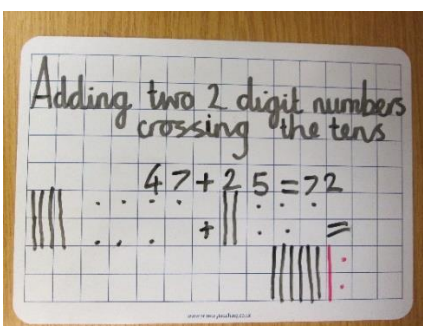 Adding two 2 digit numbers
crossing the tens
47+25=72
+ =